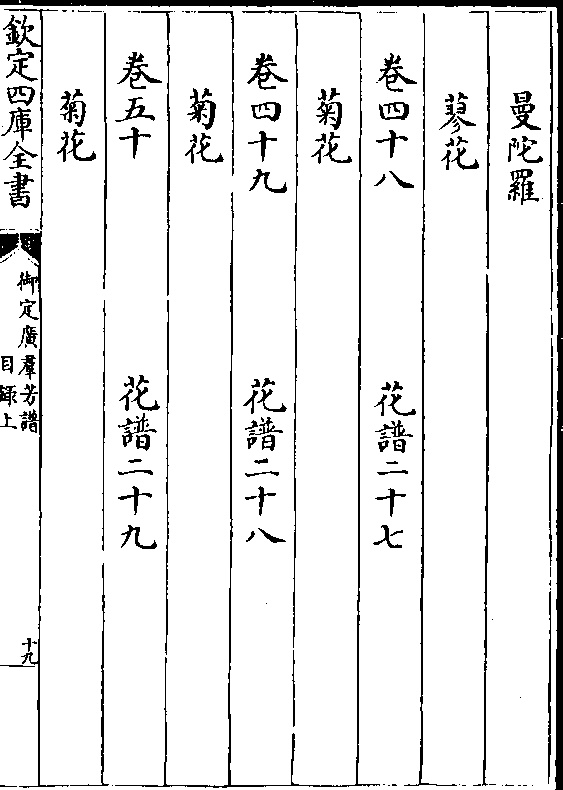 曼陀羅
蓼花
卷四十八 花譜二十七
菊花
卷四十九 花譜二十八
菊花
卷五十 花譜二十九
菊花
欽定四庫全書
御定廣羣芳譜
目録上
十九